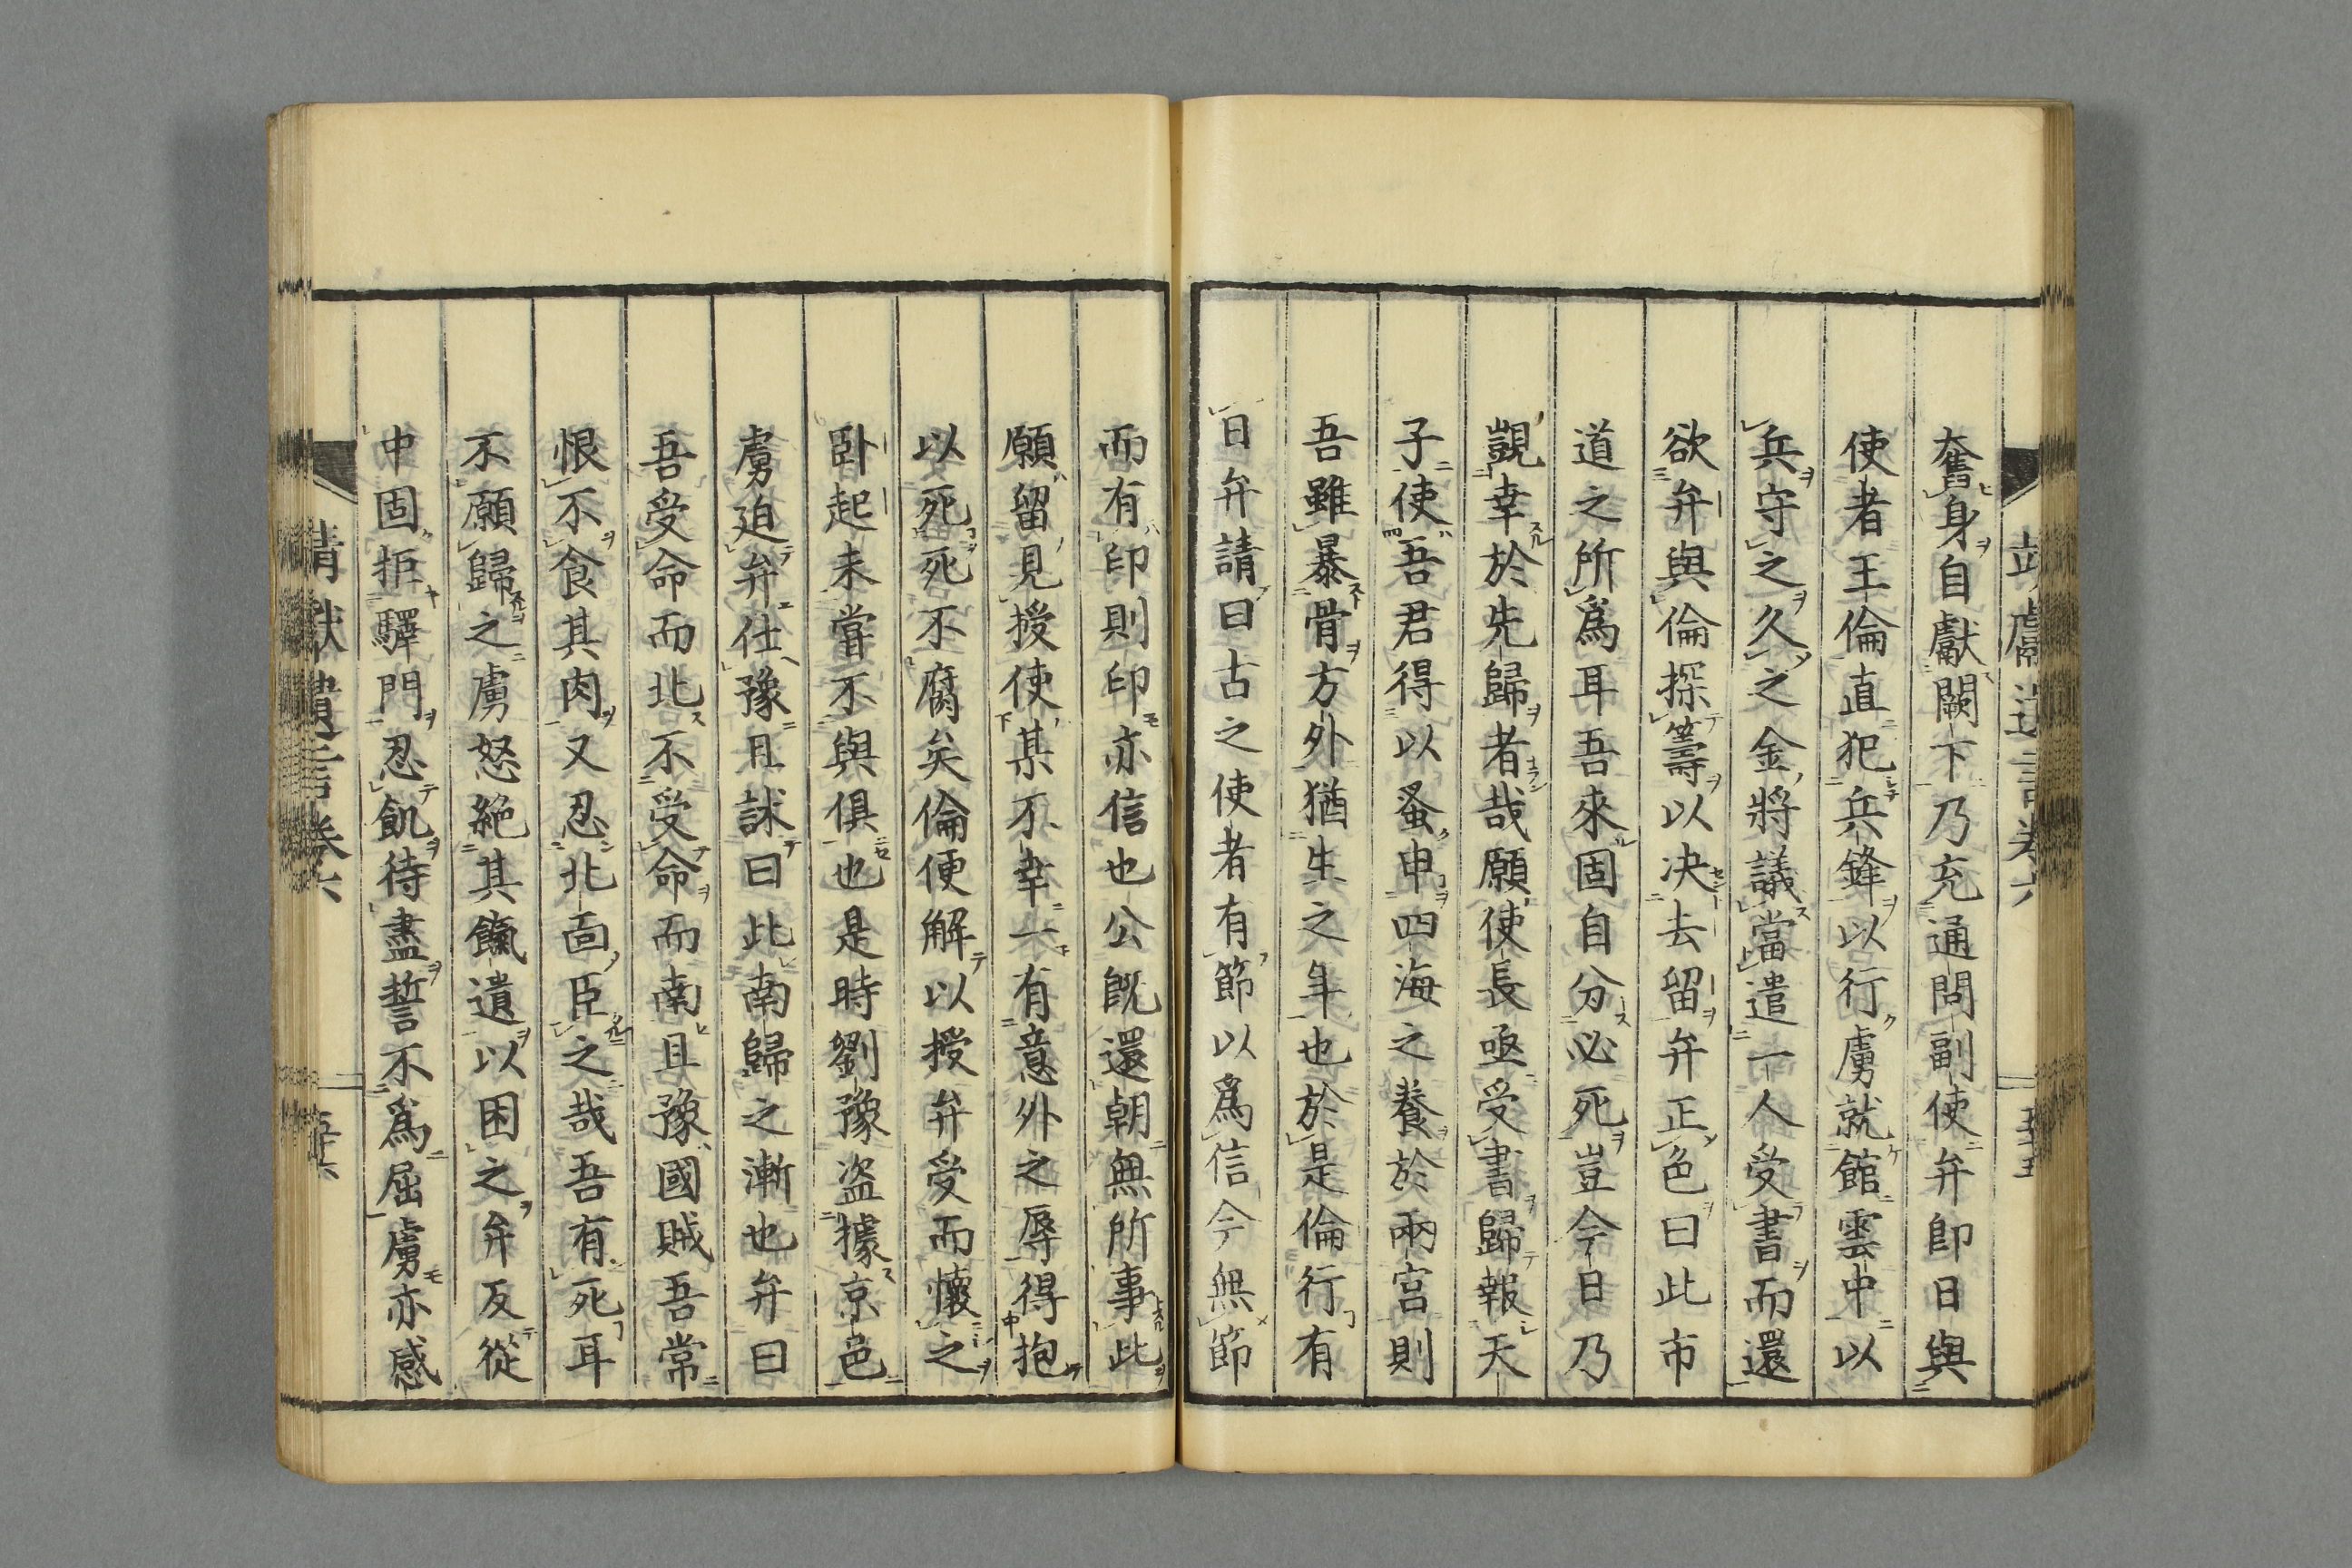 靖獻遺言卷六
五十五
奮身自獻闕下乃充通問副使弁卽日與
使者王倫直犯兵鋒以行虜就館雲中以
兵守之久之金將議當遣一人受書而還
欲弁與倫探籌以决去留弁正色曰此市
道之所爲耳吾來固自分必死豈今日乃
覬幸於先歸者哉願使長亟受書歸報天
子使吾君得以蚤申四海之養於兩宮則
吾雖暴骨方外猶生之年也於是倫行有
日弁請曰古之使者有節以爲信今無節
而有印則印亦信也公旣還朝無所事此
願留見授使某不幸一有意外之辱得抱
以死死不腐矣倫便解以授弁受而懷之
臥起未嘗不與俱也是時劉豫盜據京邑
虜迫弁仕豫且訹曰此南歸之漸也弁曰
吾受命而北不受命而南且豫國賊吾常
恨不食其肉又忍北面臣之哉吾有死耳
不願歸之虜怒絕其餼遺以困之弁反從
中固拒驛門忍飢待盡誓不爲屈虜亦感
靖獻遺言卷六